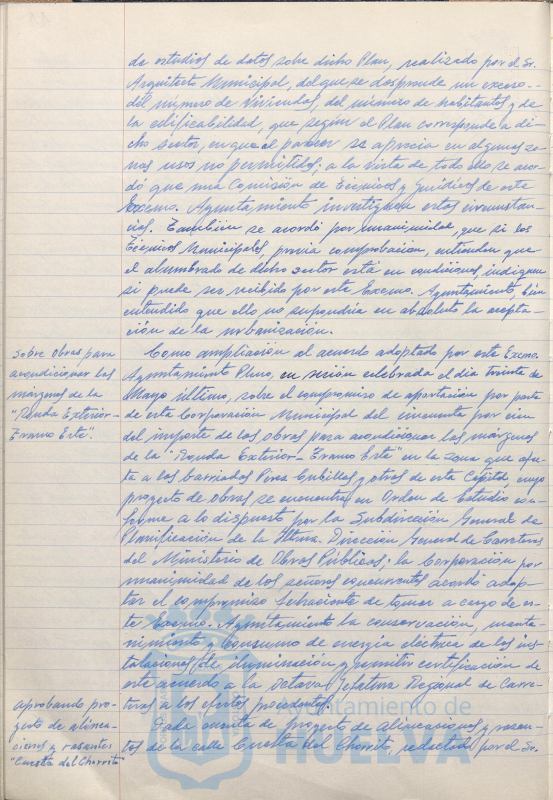 de estudios de datos sobre dicho Plan, realizado por el Sr.
Arquitecto Municipal, del que se desprende un exceso
del número de Viviendas, del número de habitantes y de
la edificabilidad, que según el Plan corresponde a di-
cho sector, en que al parecer se aprecia en algunas zo-
nas usos no permitidos; a la vista de todo ello se acor-
dó que una Comisión de Técnicos y Jurídicos de este
Excmo. Ayuntamiento investiguen estas circunstan-
cias. También se acordó por unanimidad, que si los
Técnicos Municipales, previa comprobación, entienden que
el alumbrado de dicho sector está en condiciones, indiquen
si puede ser recibido por este Excmo. Ayuntamiento, bien
entendido que ello no supondría en absoluto la acepta-
ción de la urbanización.
Sobre obras para
acondicionar las
márgenes de la
"Ronda Exterior-
Tramo Este".
Como ampliación al acuerdo adoptado por este Excmo.
Ayuntamiento Pleno, en sesión celebrada el día treinta de
Mayo último, sobre el compromiso de aportación por parte
de esta Corporación Municipal del cincuenta por cien
del importe de las obras para acondicionar las márgenes
de la "Ronda Exterior- Tramo Este" en la zona que afec-
ta a las barriadas Pérez Cubillas y otros de esta Capital, cuyo
proyecto de obras se encuentra en Orden de Estudio con-
forme a lo dispuesto por la Subdirección General de
Planificación de la Iltma. Dirección General de Carreteras
del Ministerio de Obras Públicas; la Corporación por
unanimidad de los señores concurrentes, acordó adop-
tar el compromiso fehaciente de tomar a cargo de es-
te Excmo. Ayuntamiento la conservación, mante-
nimiento y consumo de energía eléctrica de las ins-
talaciones de iluminación y remitir certificación de
este acuerdo a la Octava Jefatura Regional de Carre-
teras a los efectos procedentes.
aprobando pro-
yecto de alinea-
ciones y rasantes
"Cuesta del Chorrito"
Dada cuenta de proyecto de Alineaciones y rasan-
tes de la calle Cuesta del Chorrito, redactado por el Sr.
Ayuntamiento de
HUELVA